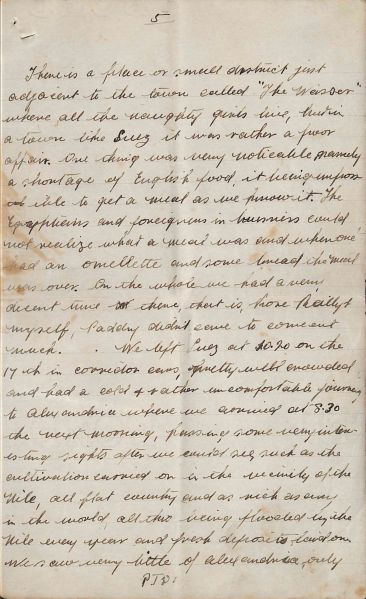 5
There is a place or small district just
adjacent to the town called "The Wasser"
where all the naughty girls live, but in
a town like Suez it was rather a poor
affair. One thing was very noticeable namely
a shortage of English food, it being impos
ible to get a meal as we know it. The
Egyptians and foreigners in business could
not realize what a meal was and when one
had an omellette and some bread the meal
was over. On the whole we had a very
decent time there, that is, Rally &
myself, Paddy didn't care to come out
much. We left Suez at 10.20 on the
17th in corridor cars, pretty well crowded,
and had a cold & rather uncomfortable journey
to Alexandria where we arrived at 8.30
the next morning, passing some very inter-
esting sights after we could see, such as the
cultivation carried on in the vicinity of the
Nile, all flat country and as rich as any
in the world, all this being flooded by the
Nile every year and fresh deposits laid on.
We saw very little of Alexandria, only
P.T.O.